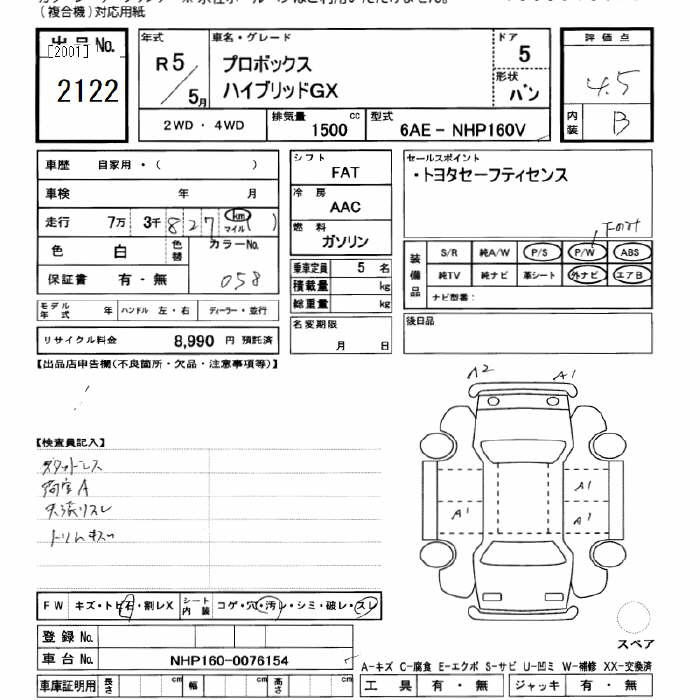 (複合機)対応用紙
出品No.
[2001]
2122
年式
R5
5月
車名・グレード
プロボックス
ハイブリッドGX
ドア
5
形状
バン
2WD・4WD
排気量
1500
cc
型式
6AE-NHP160V
評価点
4.5
内装
B
車歴 自家用・( )
車検 年 月
走行 7万 3千 827 km マイル ( )
色 白 色替 カラーNo.
058
保証書 有・無
モデル年式 年 ハンドル 左・右 ディーラー・並行
リサイクル料金 8,990 円 預託済
シフト
FAT
冷房
AAC
燃料
ガソリン
乗車定員 5 名
積載量 kg
総重量 kg
名変期限
月 日
セールスポイント
・トヨタセーフティセンス
Front
装備品
S/R 純A/W P/S P/W ABS
純TV 純ナビ 革シート 外ナビ エアB
ナビ型番:
後日品
【出品店申告欄(不良箇所・欠品・注意事項等)】
【検査員記入】
荷室A
天張リスレ
トリムキズ
A2
A1
A1
A1
A1
スペア
FW キズ・トビ石・割レX シート内装 コゲ・穴・汚レ・シミ・破レ・スレ
登録No.
車台No. NHP160-0076154
車庫証明用 長さ cm 幅 cm 高さ cm
A-キズ C-腐食 E-エクボ S-サビ U-凹ミ W-補修 XX-交換済
工具 有・無 ジャッキ 有・無